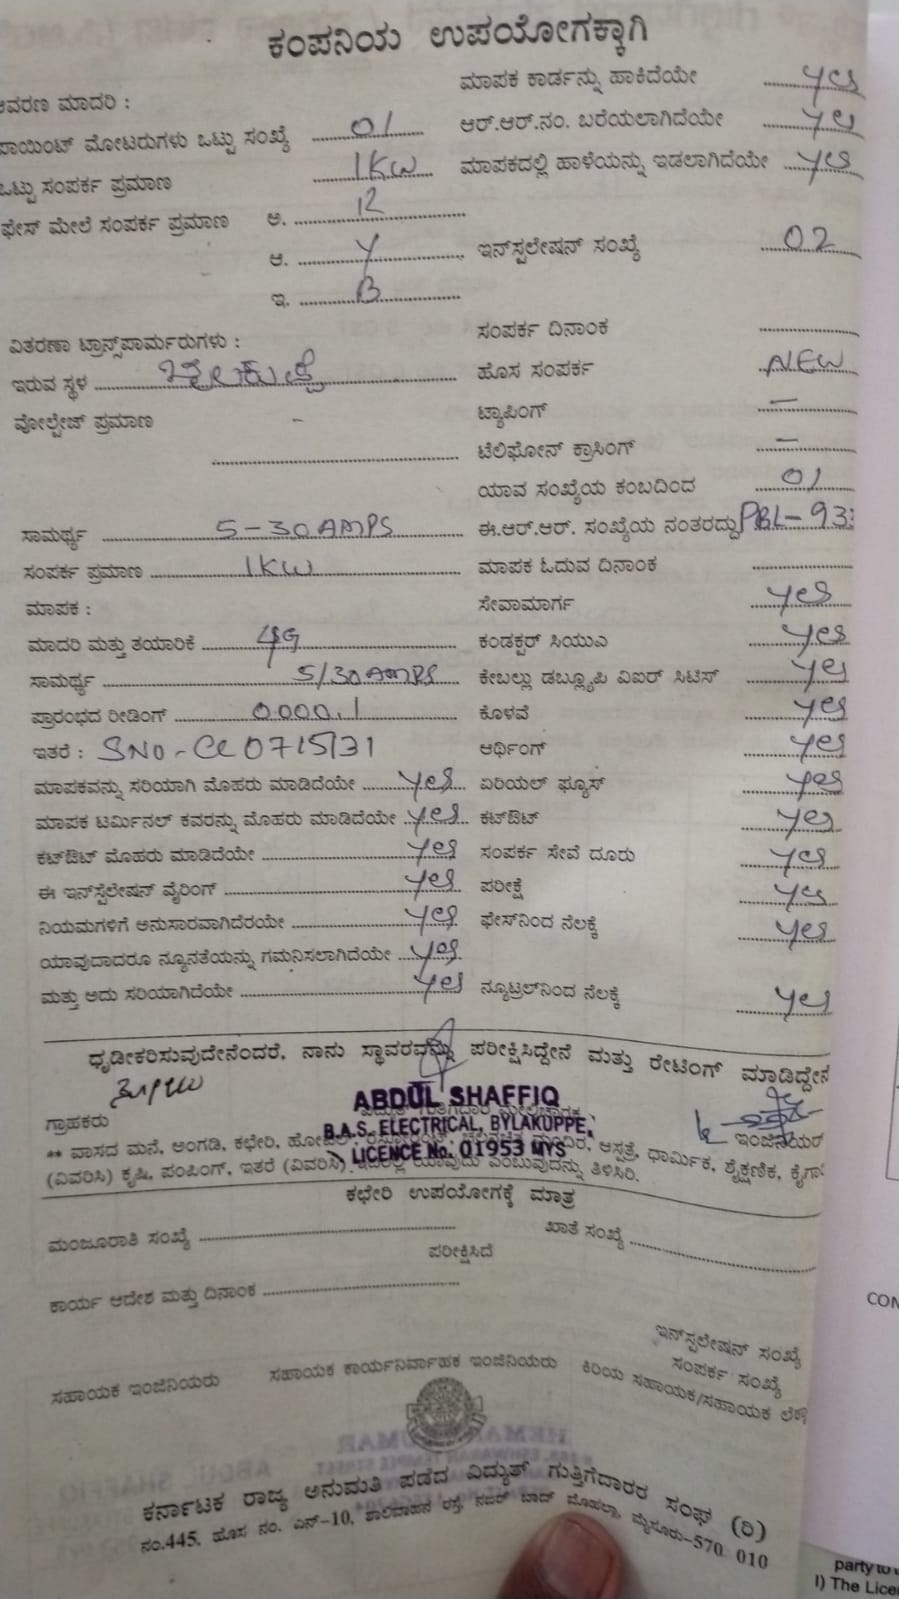 ಕಂಪನಿಯ ಉಪಯೋಗಕ್ಕಾಗಿ
ಆವರಣ ಮಾದರಿ :
ಮಾಪಕ ಕಾರ್ಡನ್ನು ಹಾಕಿದೆಯೇ yes
ಪಾಯಿಂಟ್ ಮೋಟರುಗಳು ಒಟ್ಟು ಸಂಖ್ಯೆ 01
ಆರ್.ಆರ್.ನಂ. ಬರೆಯಲಾಗಿದೆಯೇ yes
ಒಟ್ಟು ಸಂಪರ್ಕ ಪ್ರಮಾಣ 1KW
ಮಾಪಕದಲ್ಲಿ ಹಾಳೆಯನ್ನು ಇಡಲಾಗಿದೆಯೇ yes
ಫೇಸ್ ಮೇಲೆ ಸಂಪರ್ಕ ಪ್ರಮಾಣ ಅ. R
ಆ. Y
ಇನ್‌ಸ್ಟಲೇಷನ್ ಸಂಖ್ಯೆ 02
ಇ. B
ವಿತರಣಾ ಟ್ರಾನ್ಸ್‌ಪಾರ್ಮರುಗಳು :
ಸಂಪರ್ಕ ದಿನಾಂಕ
ಇರುವ ಸ್ಥಳ
ಹೊಸ ಸಂಪರ್ಕ NEW
ವೋಲ್ಟೇಜ್ ಪ್ರಮಾಣ -
ಟ್ಯಾಪಿಂಗ್ -
ಟೆಲಿಫೋನ್ ಕ್ರಾಸಿಂಗ್ -
ಯಾವ ಸಂಖ್ಯೆಯ ಕಂಬದಿಂದ 01
ಸಾಮರ್ಥ್ಯ 5-30 AMPS
ಈ.ಆರ್.ಆರ್. ಸಂಖ್ಯೆಯ ನಂತರದ್ದು PBL-93
ಸಂಪರ್ಕ ಪ್ರಮಾಣ 1KW
ಮಾಪಕ ಓದುವ ದಿನಾಂಕ
ಮಾಪಕ :
ಸೇವಾಮಾರ್ಗ yes
ಮಾದರಿ ಮತ್ತು ತಯಾರಿಕೆ
ಕಂಡಕ್ಟರ್ ಸಿಯುಎ yes
ಸಾಮರ್ಥ್ಯ 5/30 AMPS
ಕೇಬಲ್ಲು ಡಬ್ಲ್ಯೂಪಿ ವಿಐರ್ ಸಿಟಿಸ್ yes
ಪ್ರಾರಂಭದ ರೀಡಿಂಗ್ 0000.1
ಕೊಳವೆ yes
ಇತರೆ : SNO-CC0715131
ಆರ್ಥಿಂಗ್ yes
ಮಾಪಕವನ್ನು ಸರಿಯಾಗಿ ಮೊಹರು ಮಾಡಿದೆಯೇ yes
ಏರಿಯಲ್ ಫ್ಯೂಸ್ yes
ಮಾಪಕ ಟರ್ಮಿನಲ್ ಕವರನ್ನು ಮೊಹರು ಮಾಡಿದೆಯೇ yes
ಕಟ್‌ಔಟ್ yes
ಕಟ್‌ಔಟ್ ಮೊಹರು ಮಾಡಿದೆಯೇ yes
ಸಂಪರ್ಕ ಸೇವೆ ದೂರು yes
ಈ ಇನ್‌ಸ್ಟೆಲೇಷನ್ ವೈರಿಂಗ್ yes
ಪರೀಕ್ಷೆ yes
ನಿಯಮಗಳಿಗೆ ಅನುಸಾರವಾಗಿದೆರಯೇ yes
ಫೇಸ್‌ನಿಂದ ನೆಲಕ್ಕೆ yes
ಯಾವುದಾದರೂ ನ್ಯೂನತೆಯನ್ನು ಗಮನಿಸಲಾಗಿದೆಯೇ yes
ಮತ್ತು ಅದು ಸರಿಯಾಗಿದೆಯೇ yes
ನ್ಯೂಟ್ರಲ್‌ನಿಂದ ನೆಲಕ್ಕೆ yes
ಧೃಡೀಕರಿಸುವುದೇನೆಂದರೆ, ನಾನು ಸ್ಥಾವರವನ್ನು ಪರೀಕ್ಷಿಸಿದ್ದೇನೆ ಮತ್ತು ರೇಟಿಂಗ್ ಮಾಡಿದ್ದೇನೆ
ABDUL SHAFFIQ
B.A.S. ELECTRICAL, BYLAKUPPE,
LICENCE No. 01953 MYS
ಗ್ರಾಹಕರು
ಇಂಜಿನಿಯರ್
** ವಾಸದ ಮನೆ, ಅಂಗಡಿ, ಕಛೇರಿ, ಹೋಟೆಲ್, ಆಸ್ಪತ್ರೆ, ಧಾರ್ಮಿಕ, ಶೈಕ್ಷಣಿಕ,
(ವಿವರಿಸಿ) ಕೃಷಿ, ಪಂಪಿಂಗ್, ಇತರೆ (ವಿವರಿಸಿ) ಇದರಲ್ಲಿ ಯಾವುದು ಎಂಬುವುದನ್ನು ತಿಳಿಸಿರಿ.
ಕಛೇರಿ ಉಪಯೋಗಕ್ಕೆ ಮಾತ್ರ
ಮಂಜೂರಾತಿ ಸಂಖ್ಯೆ
ಖಾತೆ ಸಂಖ್ಯೆ
ಪರೀಕ್ಷಿಸಿದೆ
ಕಾರ್ಯ ಆದೇಶ ಮತ್ತು ದಿನಾಂಕ
ಇನ್‌ಸ್ಟಲೇಷನ್ ಸಂಖ್ಯೆ
ಸಂಪರ್ಕ ಸಂಖ್ಯೆ
ಸಹಾಯಕ ಇಂಜಿನಿಯರು ಸಹಾಯಕ ಕಾರ್ಯನಿರ್ವಾಹಕ ಇಂಜಿನಿಯರು ಕಿರಿಯ ಸಹಾಯಕ/ಸಹಾಯಕ
ಕರ್ನಾಟಕ ರಾಜ್ಯ ಅನುಮತಿ ಪಡೆದ ವಿದ್ಯುತ್ ಗುತ್ತಿಗೆದಾರರ ಸಂಘ (ರಿ)
ನಂ.445, ಹೊಸ ನಂ. ಎನ್-10, ಶಾಲಿವಾಹನ ರಸ್ತೆ, ನಜರ್ ಬಾದ್ ಮೊಹಲ್ಲಾ, ಮೈಸೂರು-570 010
party to
I) The Lice